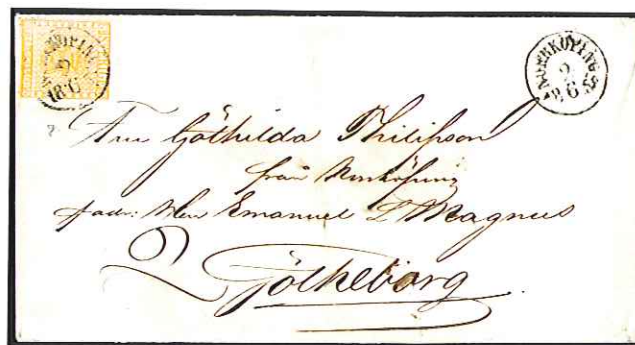 NORRKÖPING
2
6
NORRKÖPING
2
186
Fru Göthilda Philipson
från Norrköping
p adr: Herr Emanuel L Magnus
Götheborg